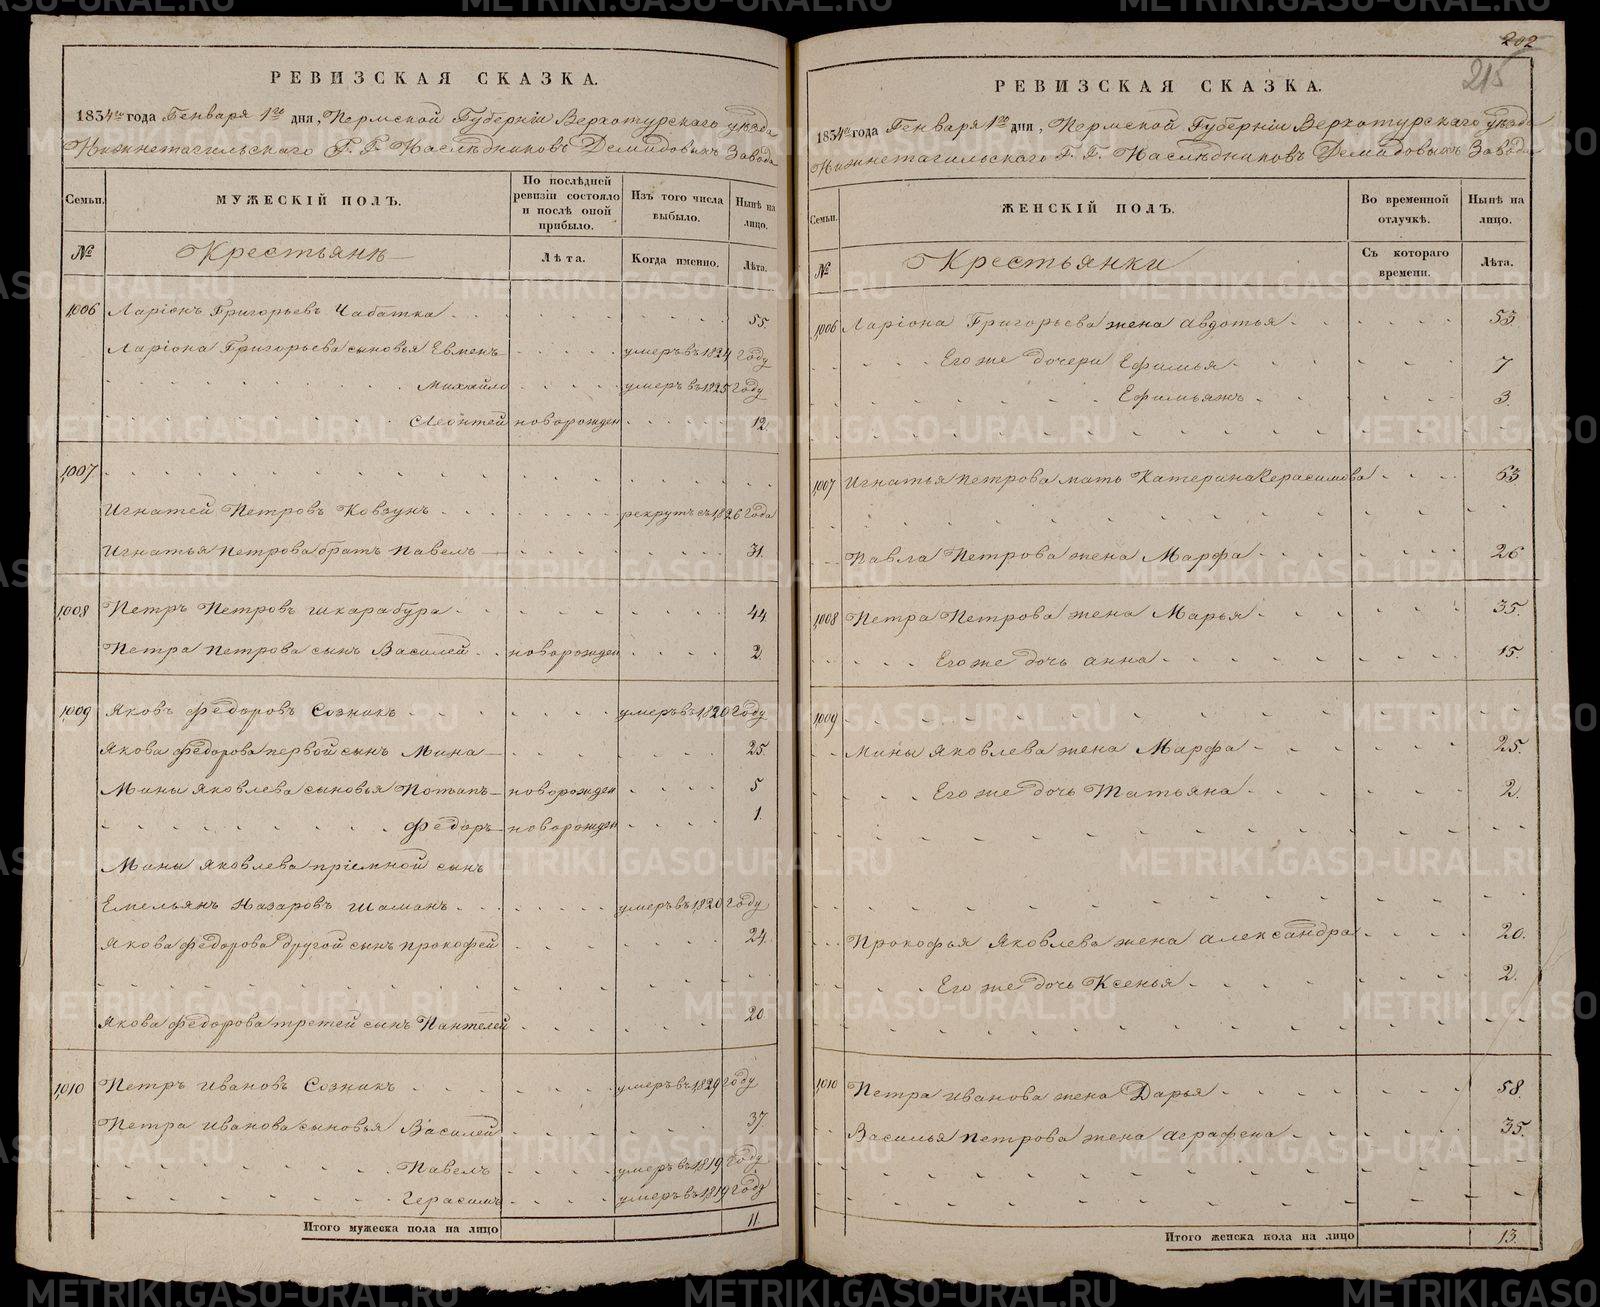 РЕВИЗСКАЯ СКАЗКА.
1834го года Генваря 1го дня, Пермской Губерніи Верхотурскаго уѣзда
Нижнетагильскаго Г. Г. Наслѣдниковъ Демидовыхъ Завода
Семьи.
МУЖЕСКІЙ ПОЛЪ.
По послѣдней ревизіи состояло и послѣ оной прибыло.
Изъ того числа выбыло.
Нынѣ на лицо.
№
Крестьяне
Лѣта.
Когда именно.
Лѣта.
1006 Ларіонъ Григорьевъ Чабатка 55.
Ларіона Григорьева сыновья Евменъ умеръ въ 1824 году
Михайло умеръ въ 1825 году
Леонтей новорожден 12.
1007
Игнатей Петровъ Ковзунъ рекрутъ съ 1826 года
Игнатья Петрова братъ Павелъ 31.
1008 Петръ Петровъ Шкарабура 44.
Петра Петрова сынъ Василей новорожден 2.
1009 Яковъ Федоровъ Созникъ умеръ въ 1820 году
Якова Федорова первой сынъ Мина 25.
Мины Яковлева сыновья Потапъ новорожден 5
Федоръ новорожден 1.
Мины Яковлева пріемной сынъ
Емельянъ Назаровъ Шаманъ умеръ въ 1820 году
Якова Федорова другой сынъ Прокофей 24.
Якова Федорова третей сынъ Пантелей 20.
1010 Петръ Ивановъ Созникъ умеръ въ 1829 году
Петра Иванова сыновья Василей 37.
Павелъ умеръ въ 1819 году
Герасимъ умеръ въ 1819 году
Итого мужеска пола на лицо 11.
202
215
РЕВИЗСКАЯ СКАЗКА.
1834го года Генваря 1го дня, Пермской Губерніи Верхотурскаго уѣзда
Нижнетагильскаго Г. Г. Наслѣдниковъ Демидовыхъ Завода
Семьи.
ЖЕНСКІЙ ПОЛЪ.
Во временной отлучкѣ.
Нынѣ на лицо.
№
Крестьянки
Съ котораго времени.
Лѣта.
1006 Ларіона Григорьева жена Авдотья 53
Его же дочери Ефимья 7
Ефимьянъ 3.
1007 Игнатья Петрова мать Катерина Герасимова 63
Павла Петрова жена Марфа 26
1008 Петра Петрова жена Марья 35.
Его же дочь Анна 15.
1009
Мины Яковлева жена Марфа 25.
Его же дочь Татьяна 2.
Прокофья Яковлева жена Александра 20.
Его же дочь Ксенья 2.
1010 Петра Иванова жена Дарья 58.
Василья Петрова жена Аграфена 35.
Итого женска пола на лицо 13.
METRIKI.GASO-URAL.RU